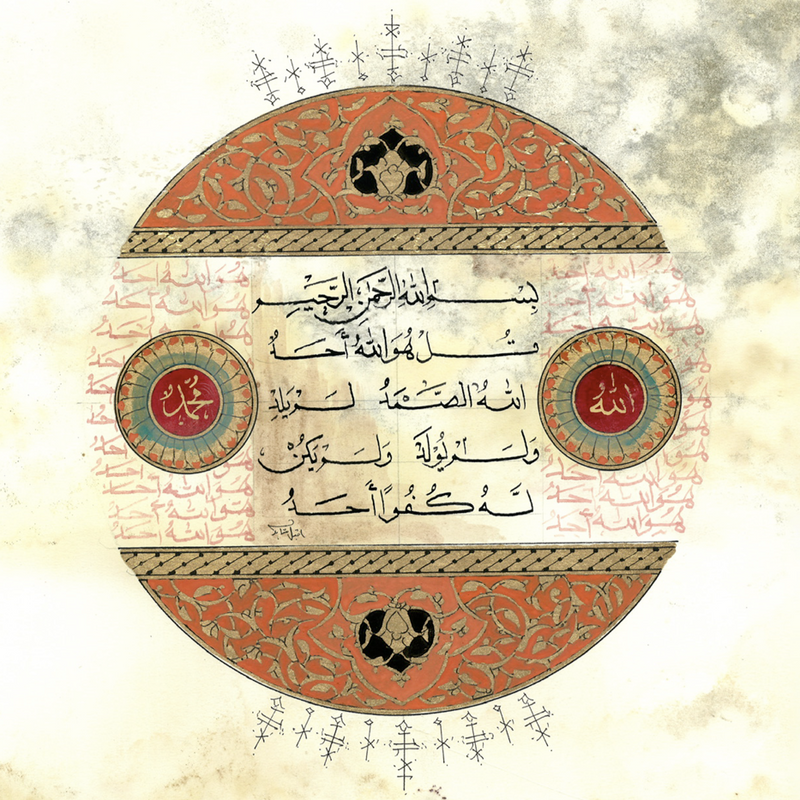 هو الله أحد
هو الله أحد
هو الله أحد
الله
هو الله أحد
هو الله أحد
هو الله أحد
بِسْمِ اللهِ الرَّحْمٰنِ الرَّحِيمِ
قُلْ هُوَ اللهُ أَحَدٌ
اللهُ الصَّمَدُ لَمْ يَلِدْ
وَلَمْ يُولَدْ وَلَمْ يَكُنْ
لَّهُ كُفُوًا أَحَدٌ
هو الله أحد
هو الله أحد
هو الله أحد
محمد
هو الله أحد
هو الله أحد
هو الله أحد